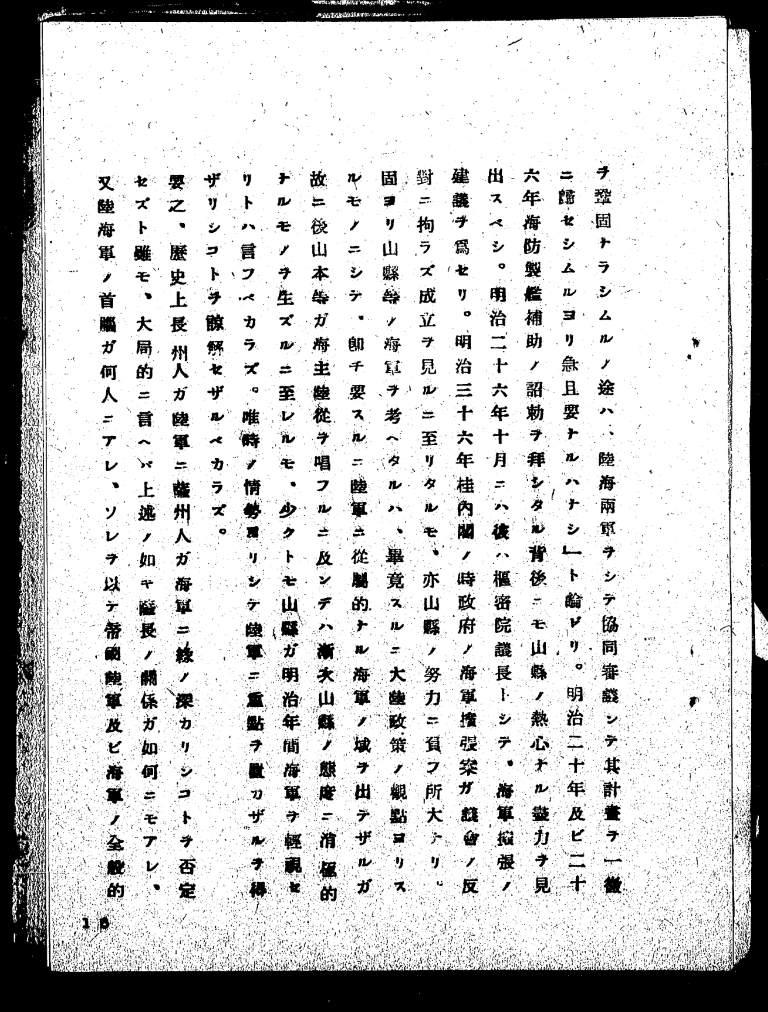 ヲ鞏固ナラシムルノ途ハ、陸海兩軍ヲシテ協同審議シテ其計畫ヲ一徹
ニ歸セシムルヨリ急且要ナルハナシ」ト論ゼリ。明治二十年及ビ二十
六年海防製艦補助ノ詔勅ヲ拜シタル背後ニモ山縣ノ熱心ナル盡力ヲ見
出スベシ。明治二十六年十月ニハ彼ハ樞密院議長トシテ、海軍擴張ノ
建議ヲ爲セリ。明治三十六年桂內閣ノ時政府ノ海軍擴張案ガ議會ノ反
對ニ拘ラズ成立ヲ見ルニ至リタルモ、亦山縣ノ努力ニ負フ所大ナリ。
固ヨリ山縣等ノ海軍ヲ考ヘタルハ、畢竟スルニ大陸政策ノ觀點ヨリス
ルモノニシテ、卽チ要スルニ陸軍ニ從屬的ナル海軍ノ域ヲ出デザルガ
故ニ後山本等ガ海主陸從ヲ唱フルニ及ンデハ漸次山縣ノ態度ニ消極的
ナルモノヲ生ズルニ至レルモ、少クトモ山縣ガ明治年間海軍ヲ輕視セ
リトハ言フベカラズ。唯時ノ情勢ヨリシテ陸軍ニ重點ヲ置カザルヲ得
ザリシコトヲ諒解セザルベカラズ。
要之、歷史上長州人ガ陸軍ニ薩州人ガ海軍ニ緣ノ深カリシコトヲ否定
セズト雖モ、大局的ニ言ヘバ上述ノ如キ薩長ノ關係ガ如何ニモアレ、
又陸海軍ノ首腦ガ何人ニアレ、ソレヲ以テ帝國陸軍及ビ海軍ノ全般的